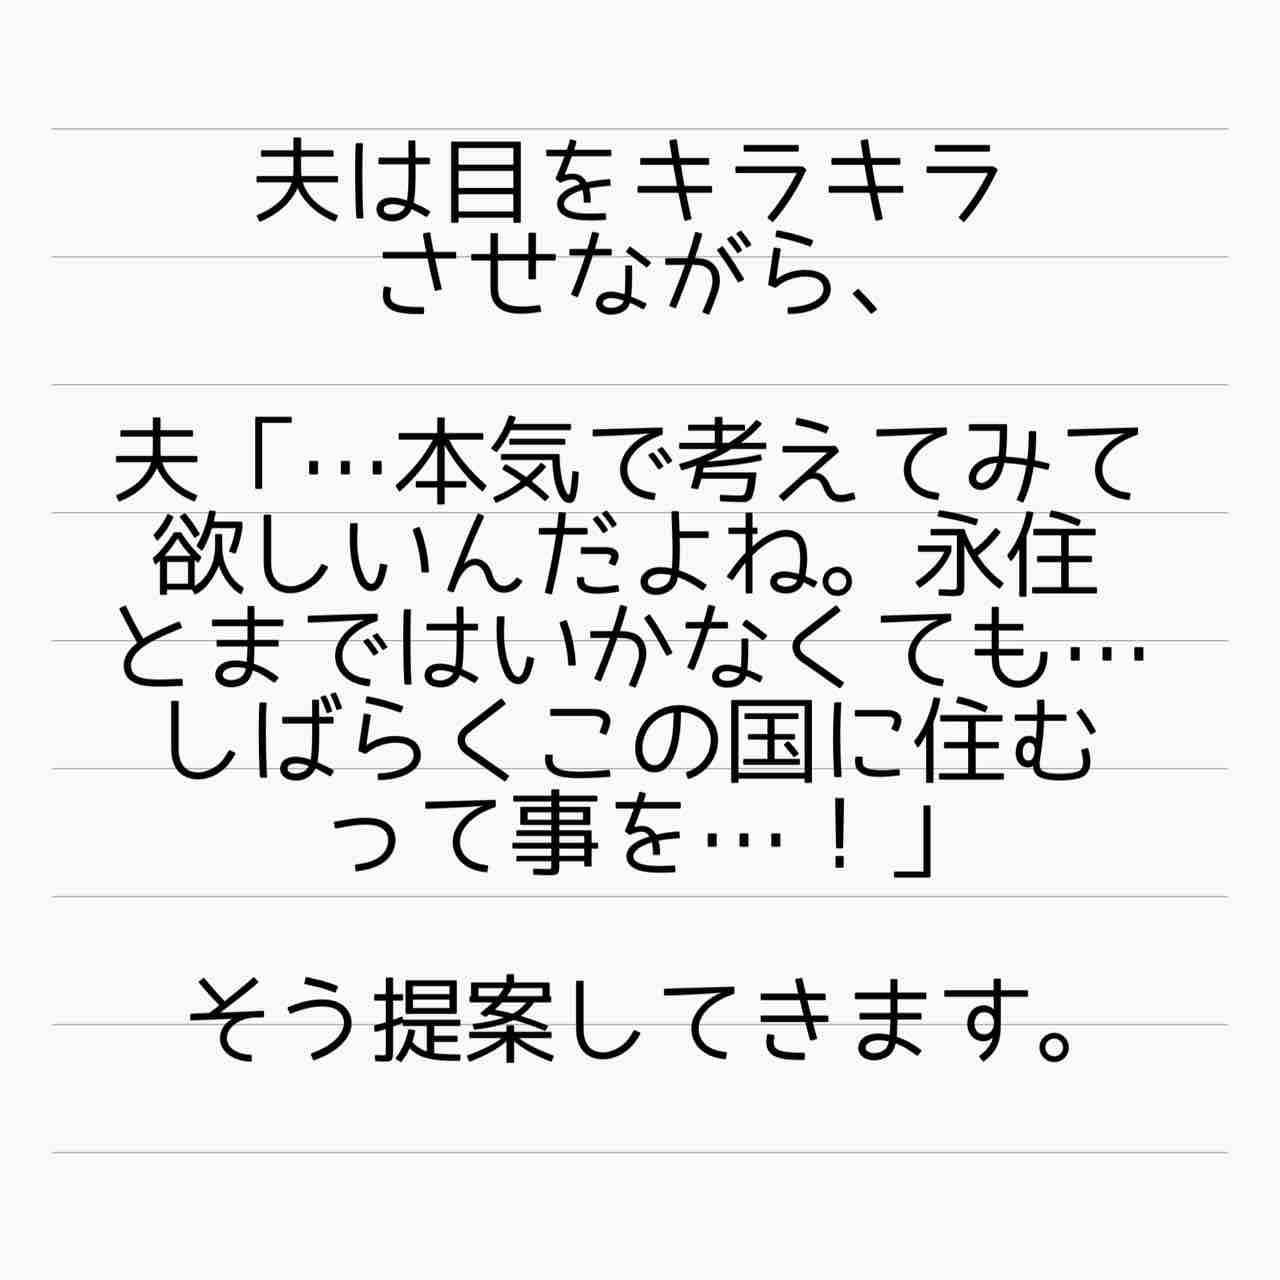 夫は目をキラキラ
させながら、
夫「…本気で考えてみて
欲しいんだよね。永住
とまではいかなくても…
しばらくこの国に住む
って事を…！」
そう提案してきます。